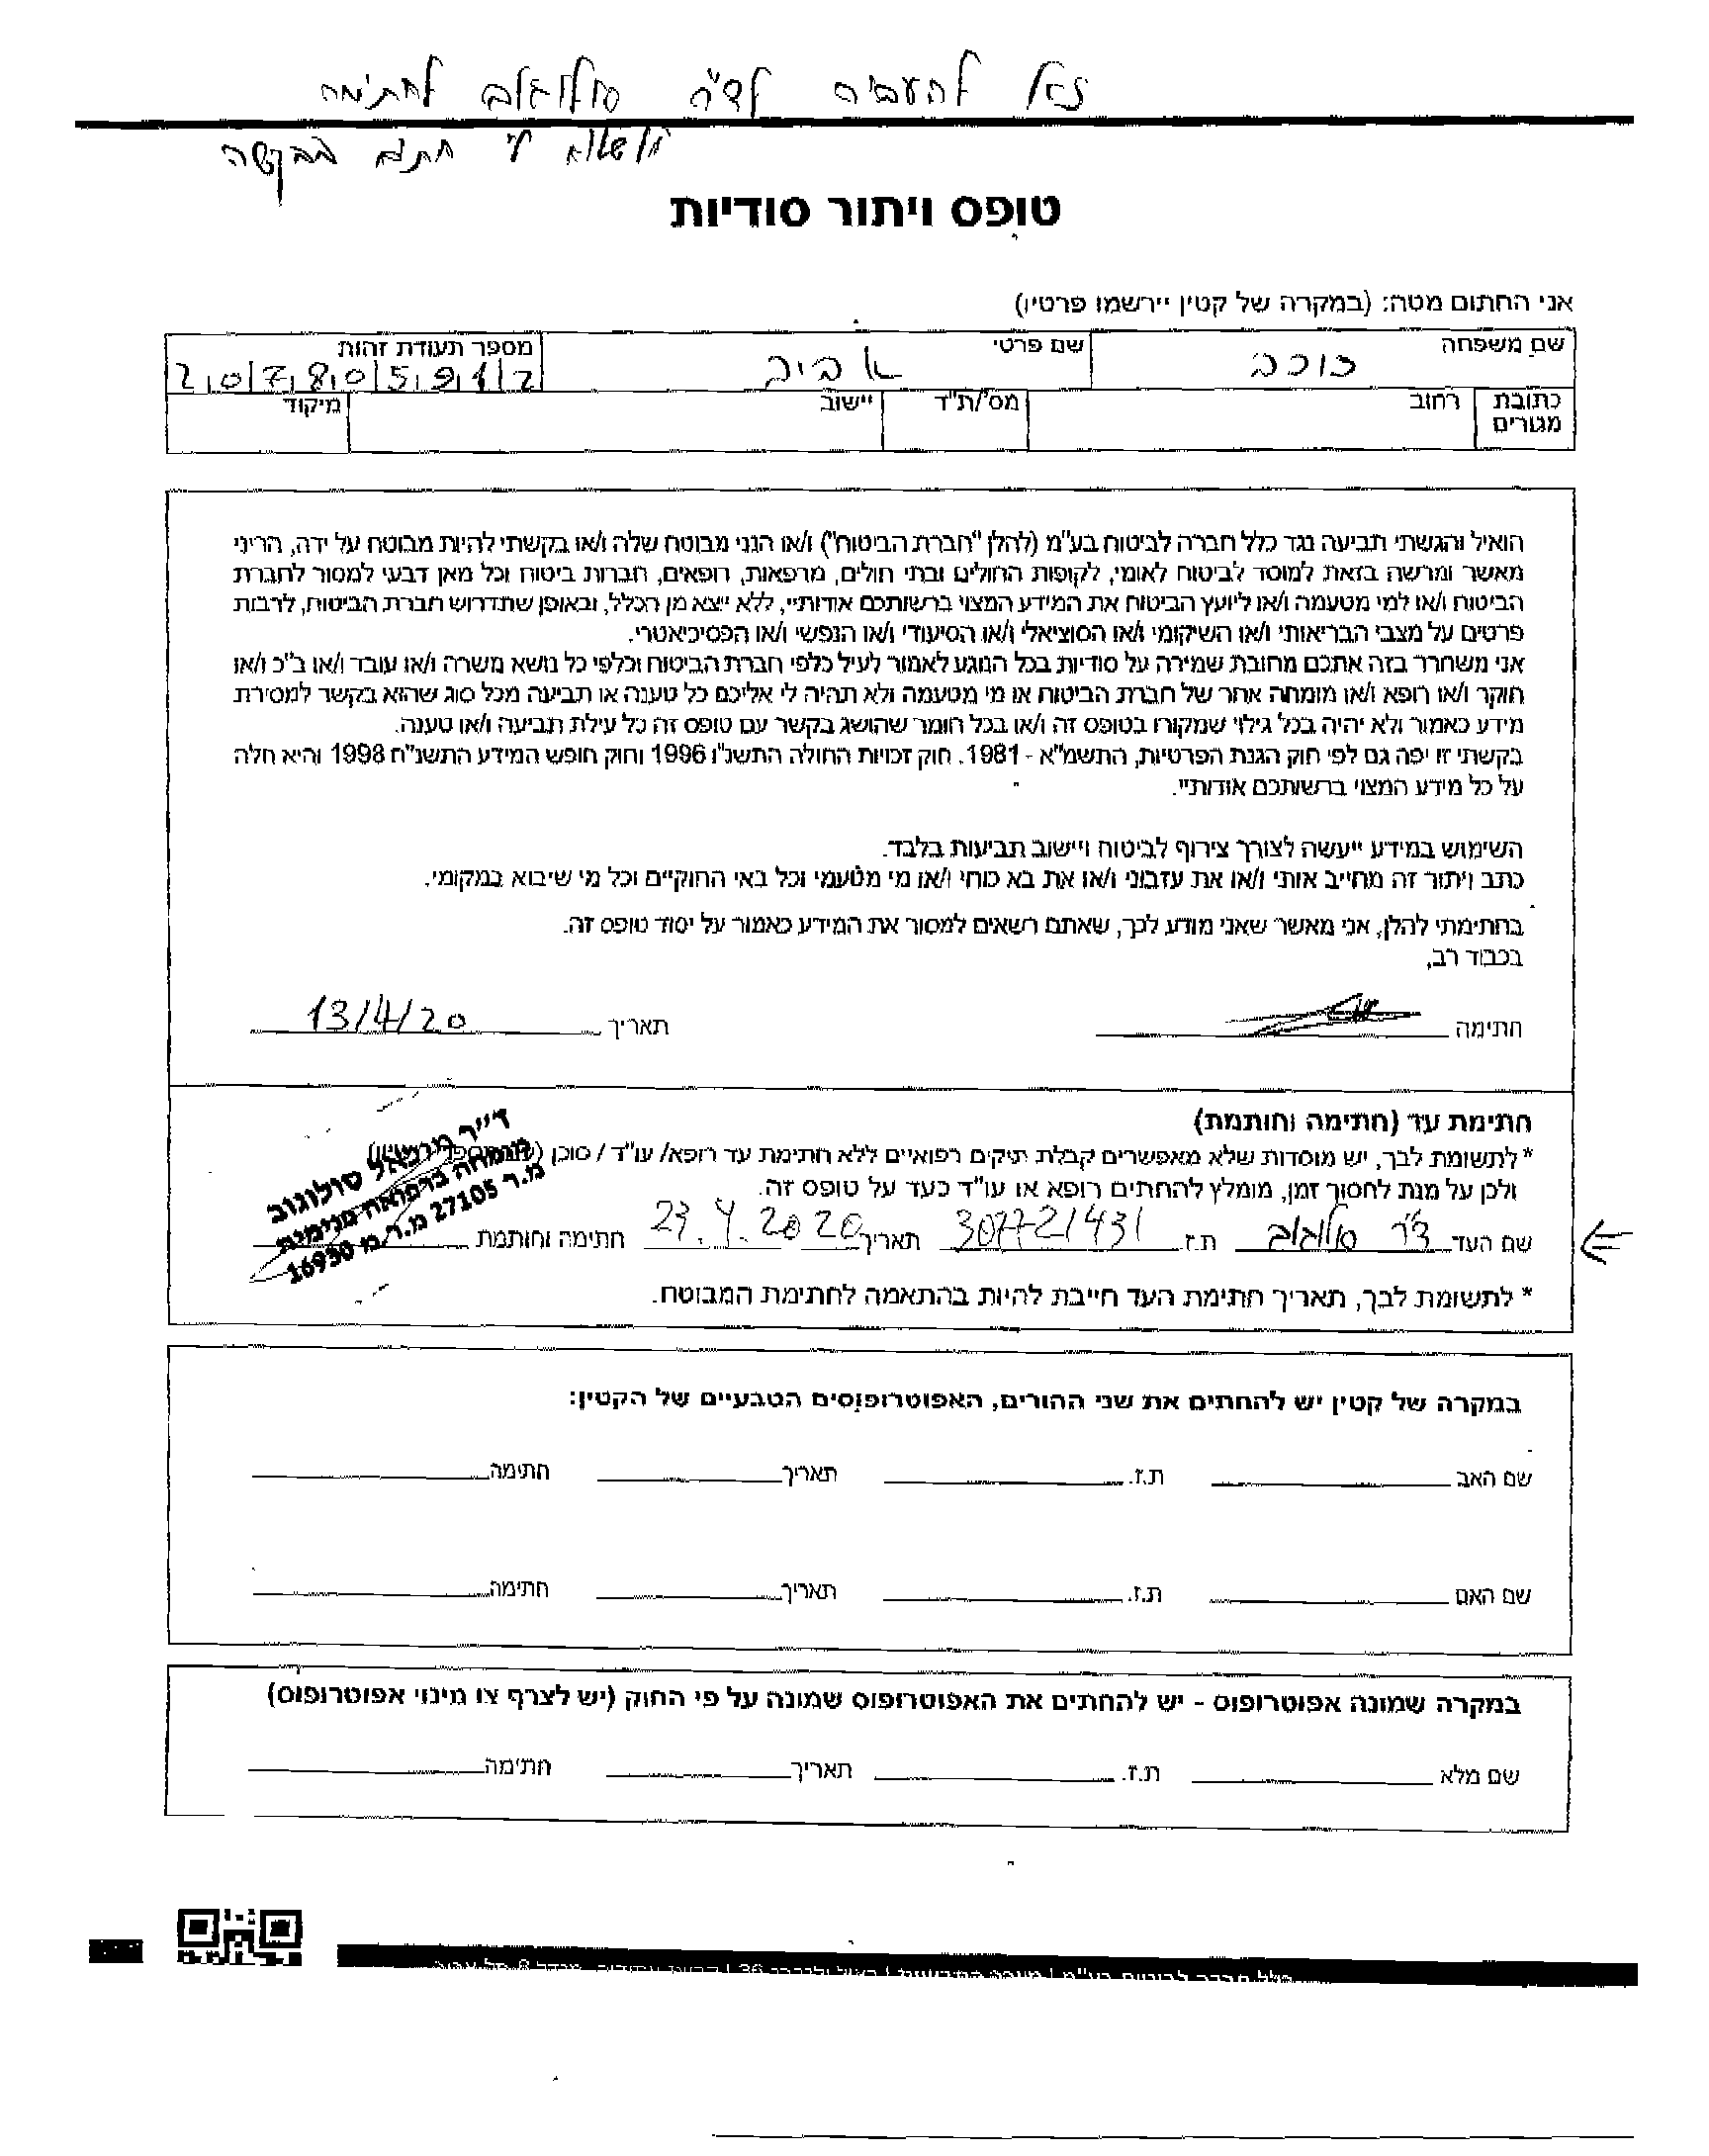 נא להעביר לד"ר סולוגוב לחתימה
חתום בבקשה
טופס ויתור סודיות
אני החתום מטה: (במקרה של קטין יירשמו פרטיו)
שם משפחה כוכב שם פרטי אביב מספר תעודת זהות 207805912
כתובת מגורים רחוב מס'/ת"ד יישוב מיקוד
הואיל והגשתי תביעה נגד כלל חברה לביטוח בע"מ (להלן "חברת הביטוח") ו/או הנני מבוטח שלה ו/או בקשתי להיות מבוטח על ידה, הריני
מאשר ומרשה בזאת למוסד לביטוח לאומי, לקופות החולים ובתי חולים, מרפאות, רופאים, חברות ביטוח וכל מאן דבעי למסור לחברת
הביטוח ו/או למי מטעמה ו/או ליועץ הביטוח את המידע המצוי ברשותכם אודותיי, ללא ייצא מן הכלל, ובאופן שתדרוש חברת הביטוח, לרבות
פרטים על מצבי הבריאותי ו/או השיקומי ו/או הסוציאלי ו/או הסיעודי ו/או הנפשי ו/או הפסיכיאטרי.
אני משחרר בזה אתכם מחובת שמירה על סודיות בכל הנוגע לאמור לעיל כלפי חברת הביטוח וכלפי כל נושא משרה ו/או עובד ו/או ב"כ ו/או
חוקר ו/או רופא ו/או מומחה אחר של חברת הביטוח או מי מטעמה ולא תהיה לי אליכם כל טענה או תביעה מכל סוג שהוא בקשר למסירת
מידע כאמור ולא יהיה בכל גילוי שמקורו בטופס זה ו/או בכל חומר שהושג בקשר עם טופס זה כל עילת תביעה ו/או טענה.
בקשתי זו יפה גם לפי חוק הגנת הפרטיות, התשמ"א - 1981. חוק זכויות החולה התשנ"ו 1996 וחוק חופש המידע התשנ"ח 1998 והיא חלה
על כל מידע המצוי ברשותכם אודותיי.
השימוש במידע ייעשה לצורך צירוף לביטוח ויישוב תביעות בלבד.
כתב ויתור זה מחייב אותי ו/או את עזבוני ו/או את בא כוחי ו/או מי מטעמי וכל באי החוקיים וכל מי שיבוא במקומי.
בחתימתי להלן, אני מאשר שאני מודע לכך, שאתם רשאים למסור את המידע כאמור על יסוד טופס זה.
בכבוד רב,
חתימה תאריך 13/4/20
חתימת עד (חתימה וחותמת)
* לתשומת לבך, יש מוסדות שלא מאפשרים קבלת תיקים רפואיים ללא חתימת עד רופא/ עו"ד / סוכן
ולכן על מנת לחסוך זמן, מומלץ להחתים רופא או עו"ד כעד על טופס זה.
שם העד ד"ר סולוגוב ת.ז 307721431 תאריך 23.4.2020 חתימה וחותמת
ד"ר מיכאל סולוגוב
מומחה ברפואה פנימית
מ.ר 27105 מ.ר.מ 16930
* לתשומת לבך, תאריך חתימת העד חייבת להיות בהתאמה לחתימת המבוטח.
במקרה של קטין יש להחתים את שני ההורים, האפוטרופסים הטבעיים של הקטין:
שם האב ת.ז. תאריך חתימה
שם האם ת.ז. תאריך חתימה
במקרה שמונה אפוטרופוס - יש להחתים את האפוטרופוס שמונה על פי החוק (יש לצרף צו מינוי אפוטרופוס)
שם מלא ת.ז. תאריך חתימה